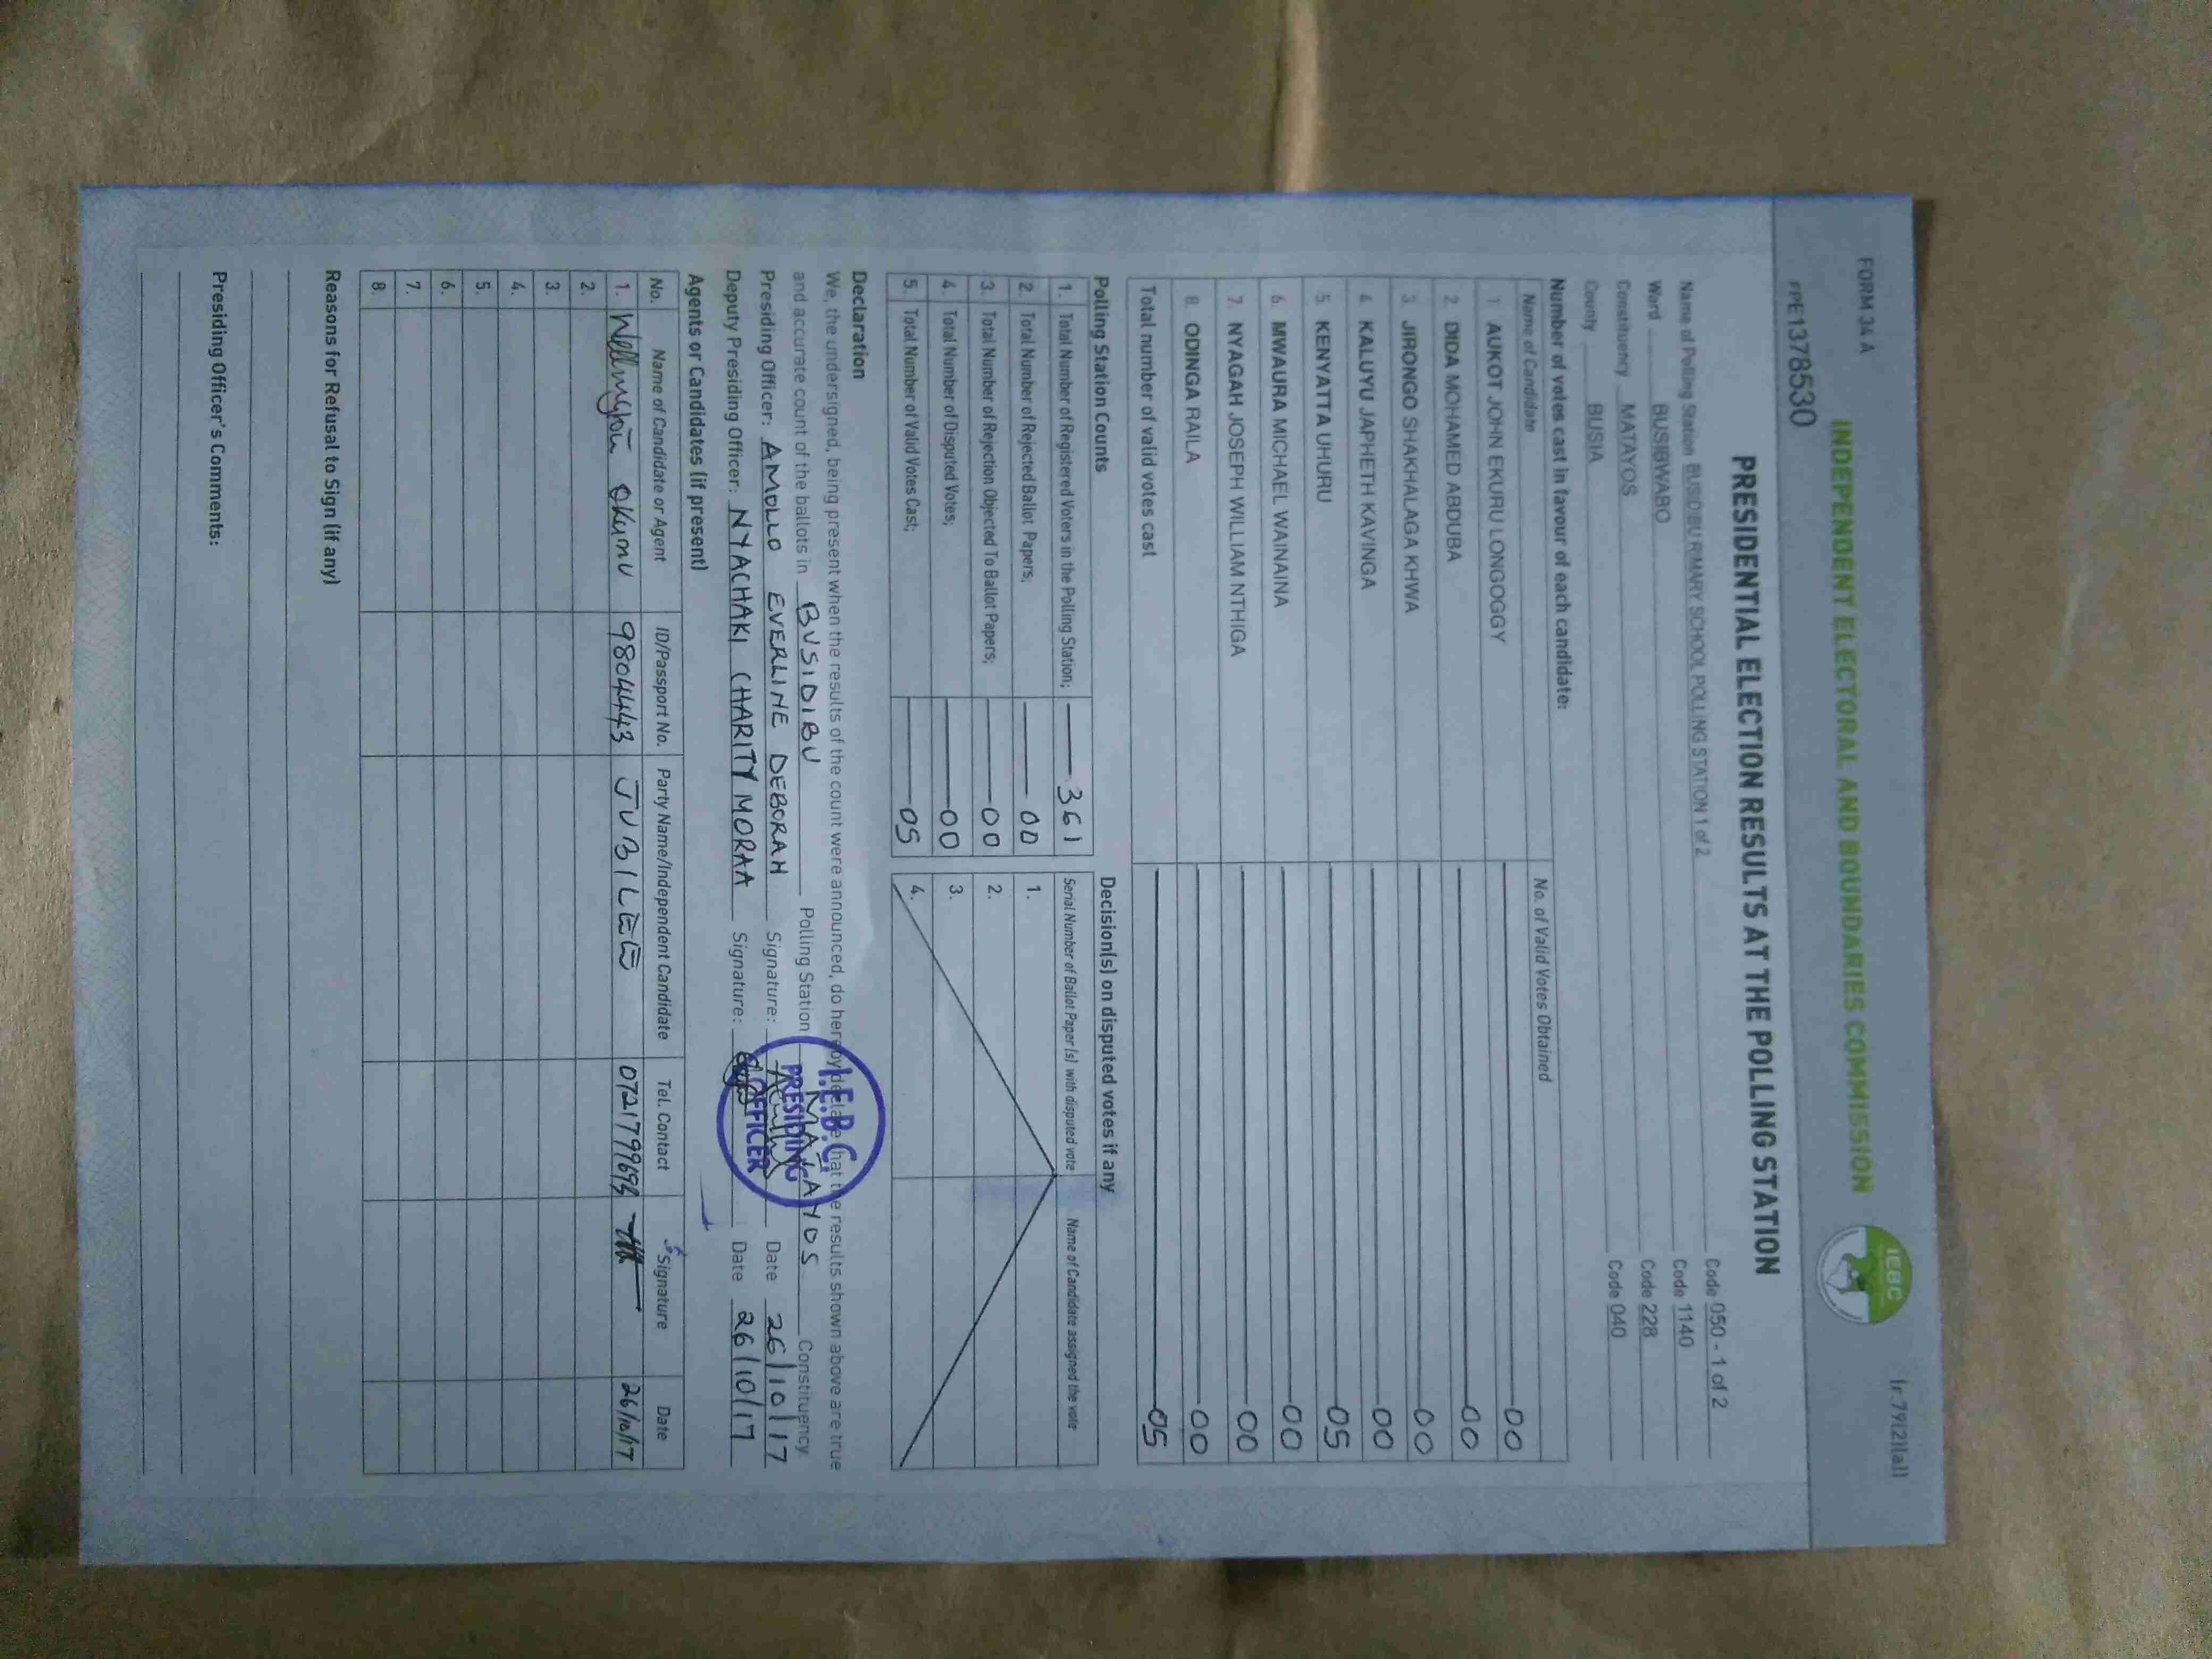 FORM 34 A
(r.79(2)(a))
INDEPENDENT ELECTORAL AND BOUNDARIES COMMISSION
IEBC
PE1378530
PRESIDENTIAL ELECTION RESULTS AT THE POLLING STATION
Name of Polling Station BUSIDIBU RIMARY SCHOOL POLLING STATION 1 of 2 Code 050 - 1 of 2
Ward BUSIBWABO Code 1140
Constituency MATAYOS Code 228
County BUSIA Code 040
Number of votes cast in favour of each candidate:
Name of Candidate No. of Valid Votes Obtained
1. AUKOT JOHN EKURU LONGOGGY 00
2. DIDA MOHAMED ABDUBA 00
3. JIRONGO SHAKHALAGA KHWA 00
4. KALUYU JAPHETH KAVINGA 00
5. KENYATTA UHURU 05
6. MWAURA MICHAEL WAINAINA 00
7. NYAGAH JOSEPH WILLIAM NTHIGA 00
8. ODINGA RAILA 00
Total number of valid votes cast 05
Polling Station Counts
1. Total Number of Registered Voters in the Polling Station; 361
2. Total Number of Rejected Ballot Papers; 00
3. Total Number of Rejection Objected To Ballot Papers; 00
4. Total Number of Disputed Votes; 00
5. Total Number of Valid Votes Cast; 05
Decision(s) on disputed votes if any
Serial Number of Ballot Paper (s) with disputed vote Name of Candidate assigned the vote
1.
2.
3.
4.
Declaration
We, the undersigned, being present when the results of the count were announced, do hereby declare that the results shown above are true
and accurate count of the ballots in BUSIDIBU Polling Station MATAYOS Constituency.
Presiding Officer: AMOLLO EVERLINE DEBORAH Signature: Date 26/10/17
Deputy Presiding Officer: NYACHAKI CHARITY MORAA Signature: Date 26/10/17
I.E.B.C.
PRESIDING
OFFICER
Agents or Candidates (if present)
No. Name of Candidate or Agent ID/Passport No. Party Name/Independent Candidate Tel. Contact Signature Date
1. Wellington Okumu 9804443 JUBILEE 26/10/17
2.
3.
4.
5.
6.
7.
8.
Reasons for Refusal to Sign (if any)
Presiding Officer's Comments: